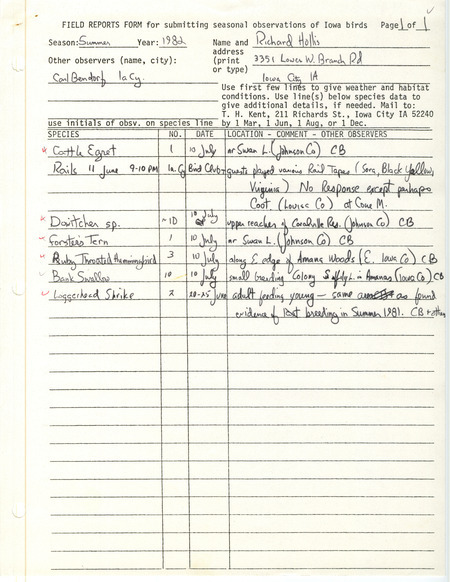 FIELD REPORTS FORM for submitting seasonal observations of Iowa birds Page 1 of 1
Season: Summer Year: 1982 Name and Richard Hollis
address
Other observers (name, city): (print 3351 Lower W. Branch Rd
or type)
Carl Bendorf Ia Cy. Iowa City IA
Use first few lines to give weather and habitat
conditions. Use line(s) below species data to
give additional details, if needed. Mail to:
T. H. Kent, 211 Richards St., Iowa City IA 52240
use initials of obsv. on species line by 1 Mar, 1 Jun, 1 Aug, or 1 Dec.
SPECIES NO. DATE LOCATION - COMMENT - OTHER OBSERVERS
Cattle Egret 1 10 July nr Swan L. (Johnson Co) CB
Rails 11 June 9-10 PM Ia. Cy Bird Club + guests played various Rail Tapes (Sora, Black, Yellow,
Virginia) No Response except perhaps
Coot. (Louisa Co) at Cone M.
Dowitcher sp. ~10 10 July upper reaches of Coralville Res. (Johnson Co) CB
Forster's Tern 1 10 July nr Swan L. (Johnson Co) CB
Ruby Throated Hummingbird 3 10 July along S. edge of Amana Woods (E. Iowa Co) CB
Bank Swallow 10 10 July small Breeding Colony S of Lily L. in Amanas (Iowa Co) CB
Loggerhead Shrike 2 20-25 June adult feeding young - same as found
evidence of Post breeding in Summer 1981. CB + others